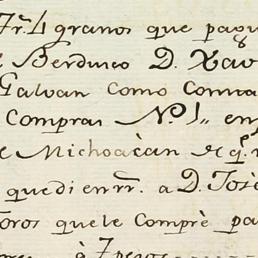 7r. 4 granos que pagu
Berduco D. Xav
Galvan como Comna
Compras N.º 1,, en
Michoacàn
quedi en rr. a D. Josè
Toros quele Comprè pa
à 7 pesos